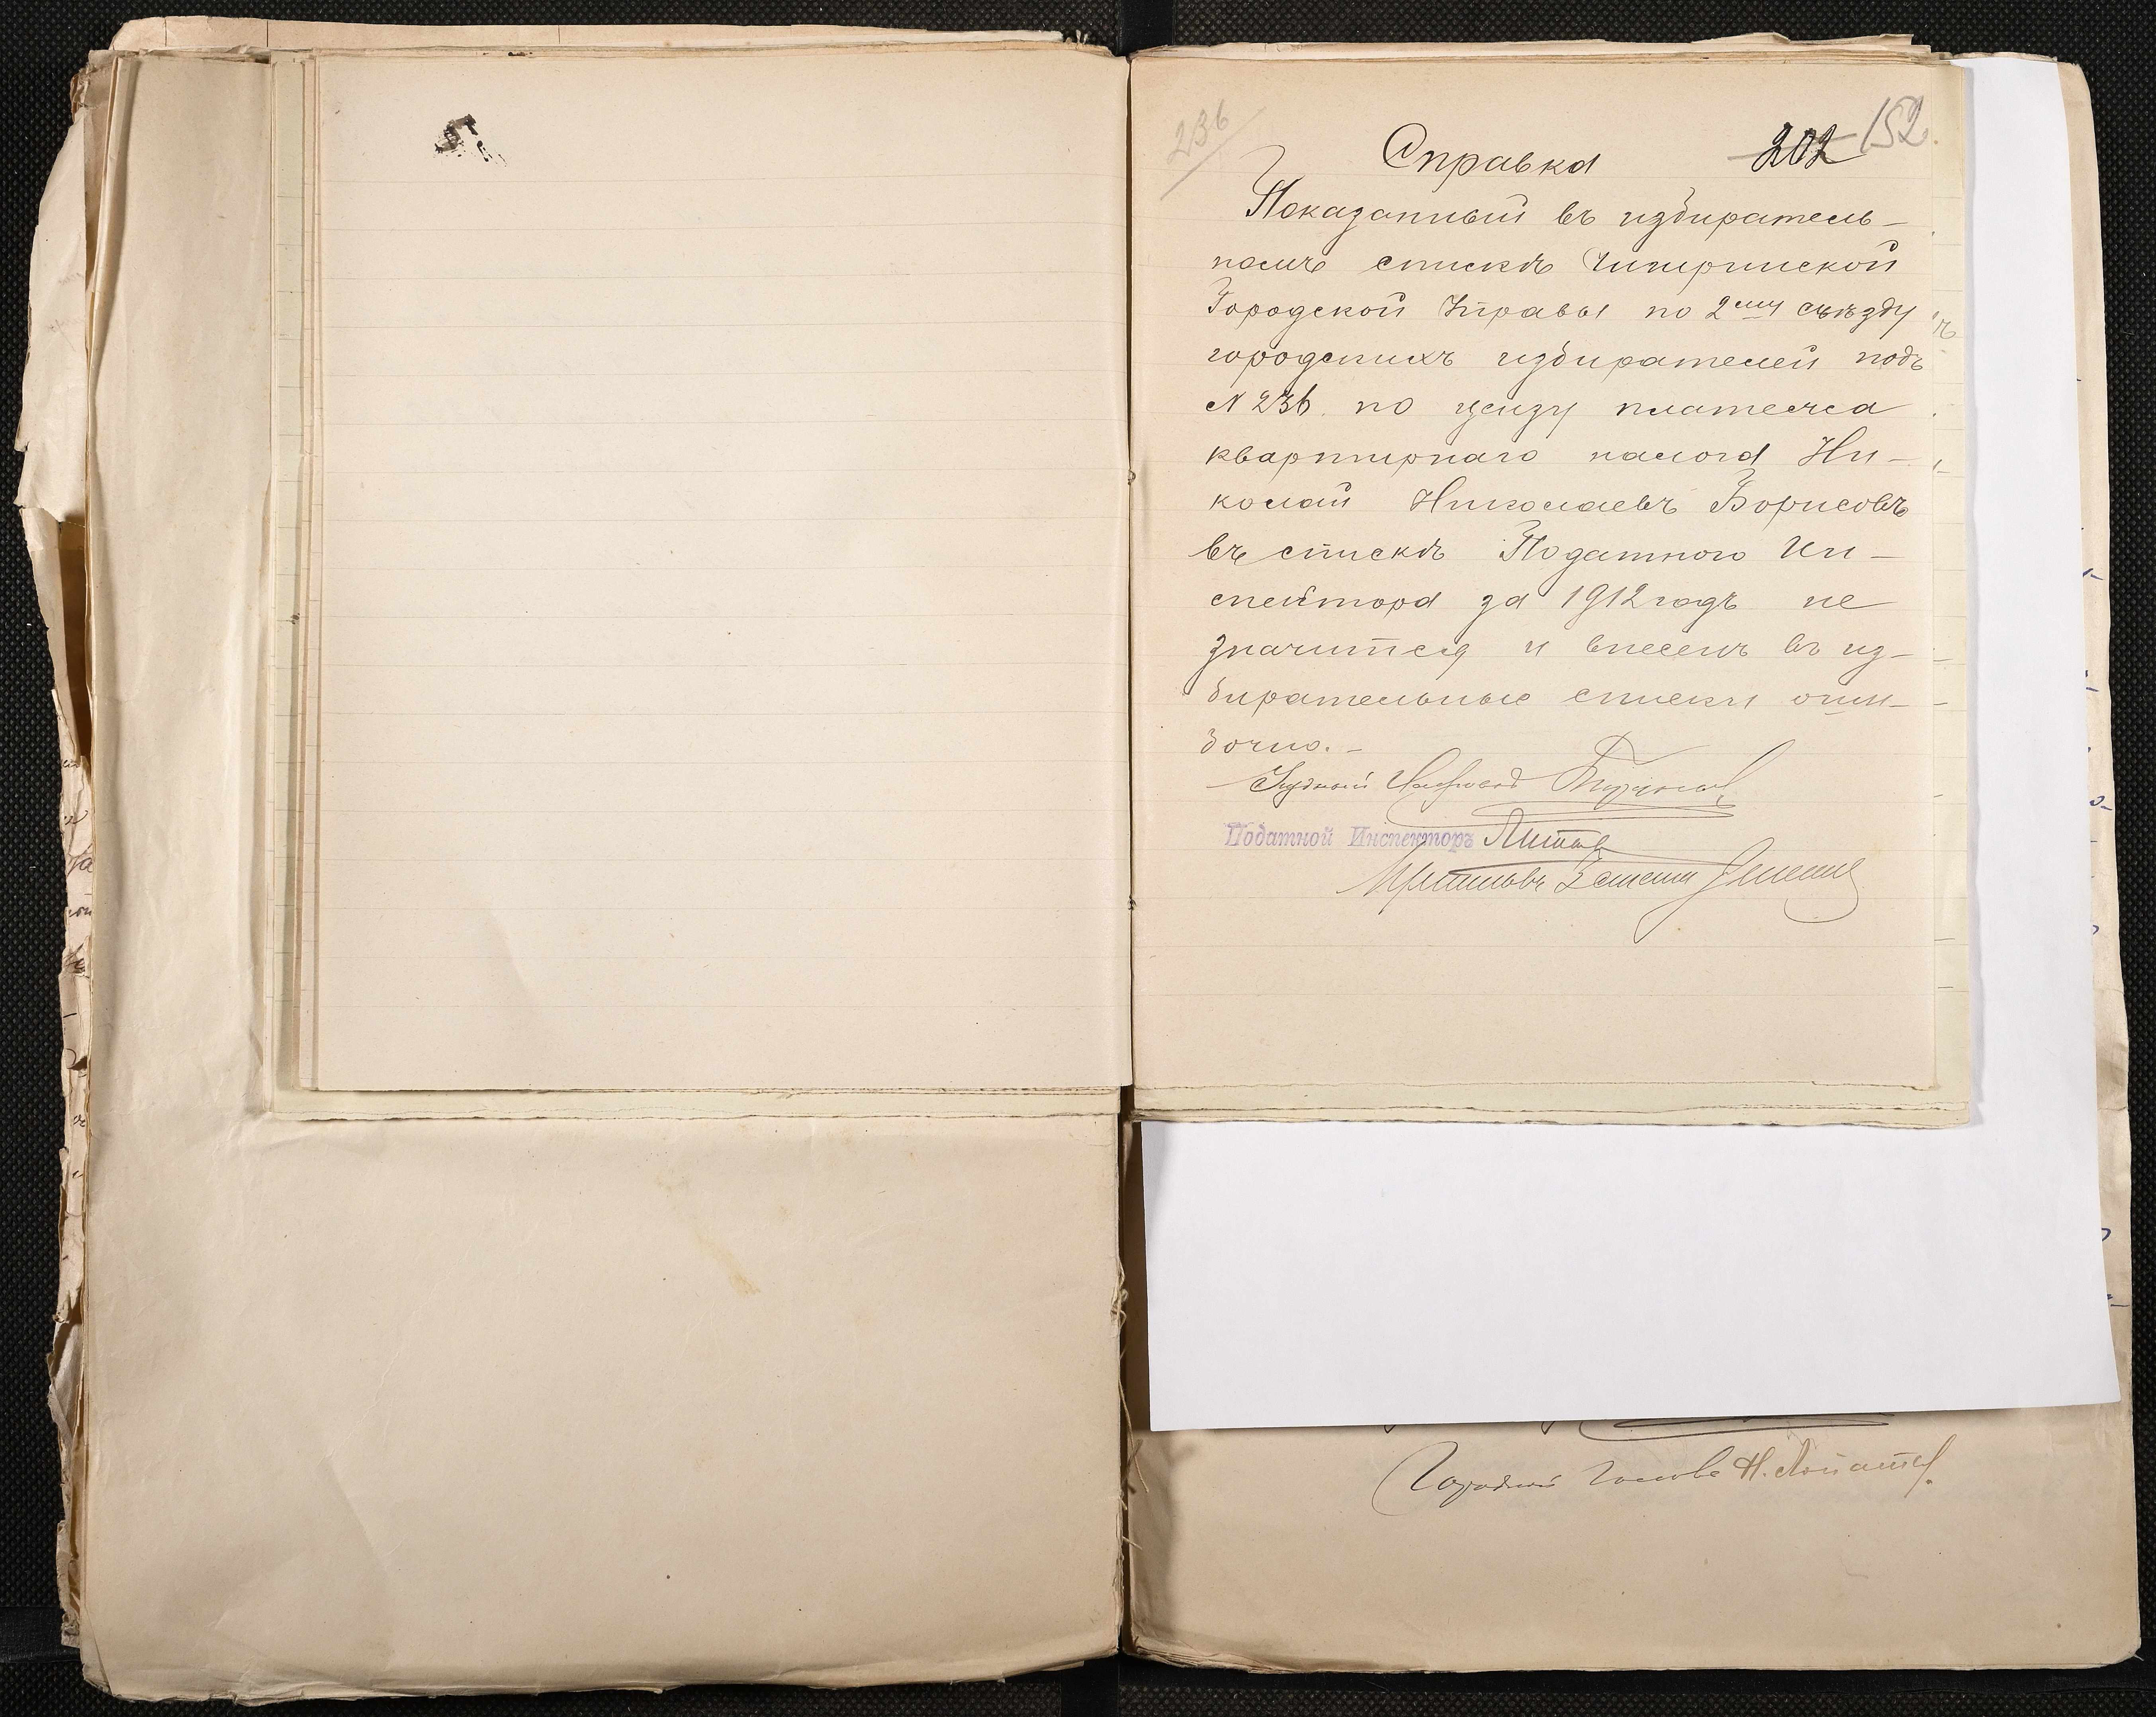 236
202 152.
Справка
Показанный въ избиратель-
номъ спискѣ Чигиринской
Городской Управы по 2му съѣзду
городскихъ избирателей подъ
№ 236. по цензу плательща
квартирнаго налога Ни-
колай Николаевъ Борисовъ
въ спискѣ Податного Ин-
спектора за 1912 годъ не
значится и внесенъ въ из-
бирательные списки оши-
бочно.-
Уѣздный
Податной Инспекторъ
Городской Голова Н.